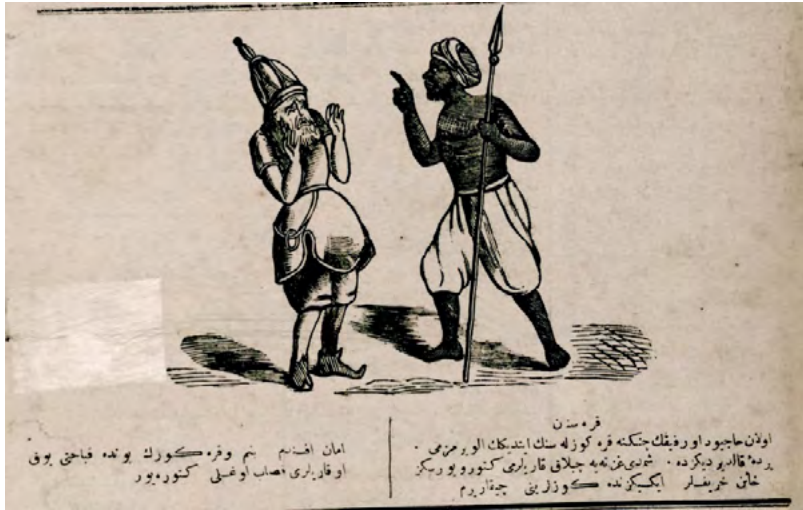 قره سنن
اولان حاجیود او رفیقك جنكنه قره كوزله سنك ایتدیكك الویرمزمی .
پرده قالدیر دیكزده . شمدی غزته یه چپلاق قاریلرمی كتورویورسكز
خائن حریفلر ایكیكزنده كوزلرینی چیقاریرم
امان افندم بنم وقره كوزك بونده قباحتی یوق
او قاریلری قصاب اوغلی كتوره یور